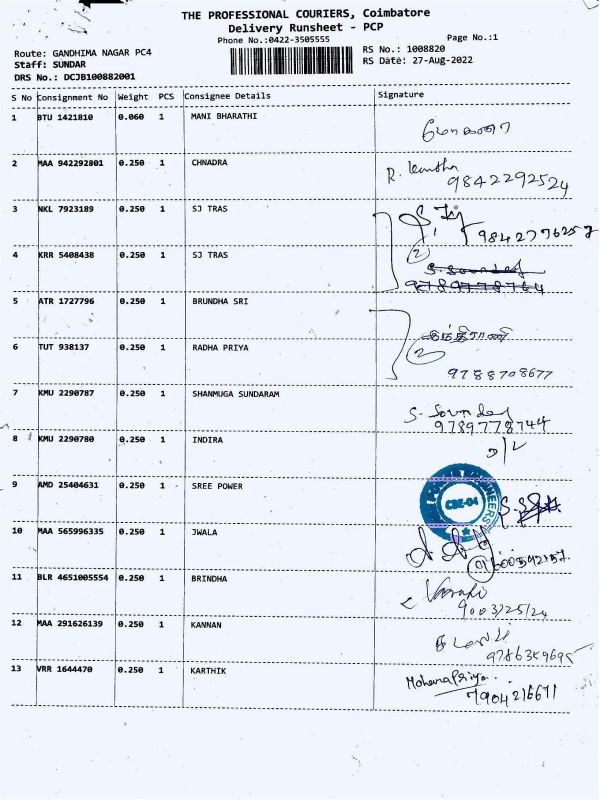 THE PROFESSIONAL COURIERS, Coimbatore
Delivery Runsheet - PCP
Phone No.:0422-3505555
Page No.:1
Route: GANDHIMA NAGAR PC4
RS No.: 1008820
Staff: SUNDAR
RS Date: 27-Aug-2022
DRS No.: DCJB100882001
S No Consignment No Weight PCS Consignee Details Signature
1 BTU 1421810 0.060 1 MANI BHARATHI
2 MAA 942292801 0.250 1 CHNADRA
R. 9842292524
3 NKL 7923189 0.250 1 SJ TRAS
4 KRR 5408438 0.250 1 SJ TRAS
2
9789778744
5 ATR 1727796 0.250 1 BRUNDHA SRI
6 TUT 938137 0.250 1 RADHA PRIYA
2
9788708677
7 KMU 2290787 0.250 1 SHANMUGA SUNDARAM
9789778744
8 KMU 2290780 0.250 1 INDIRA
9 AMD 25404631 0.250 1 SREE POWER
CBE-04
10 MAA 565996335 0.250 1 JWALA
11 BLR 4651005554 0.250 1 BRINDHA
9003125124
12 MAA 291626139 0.250 1 KANNAN
9786359695
13 VRR 1644470 0.250 1 KARTHIK
MohanaPriya
7904216671